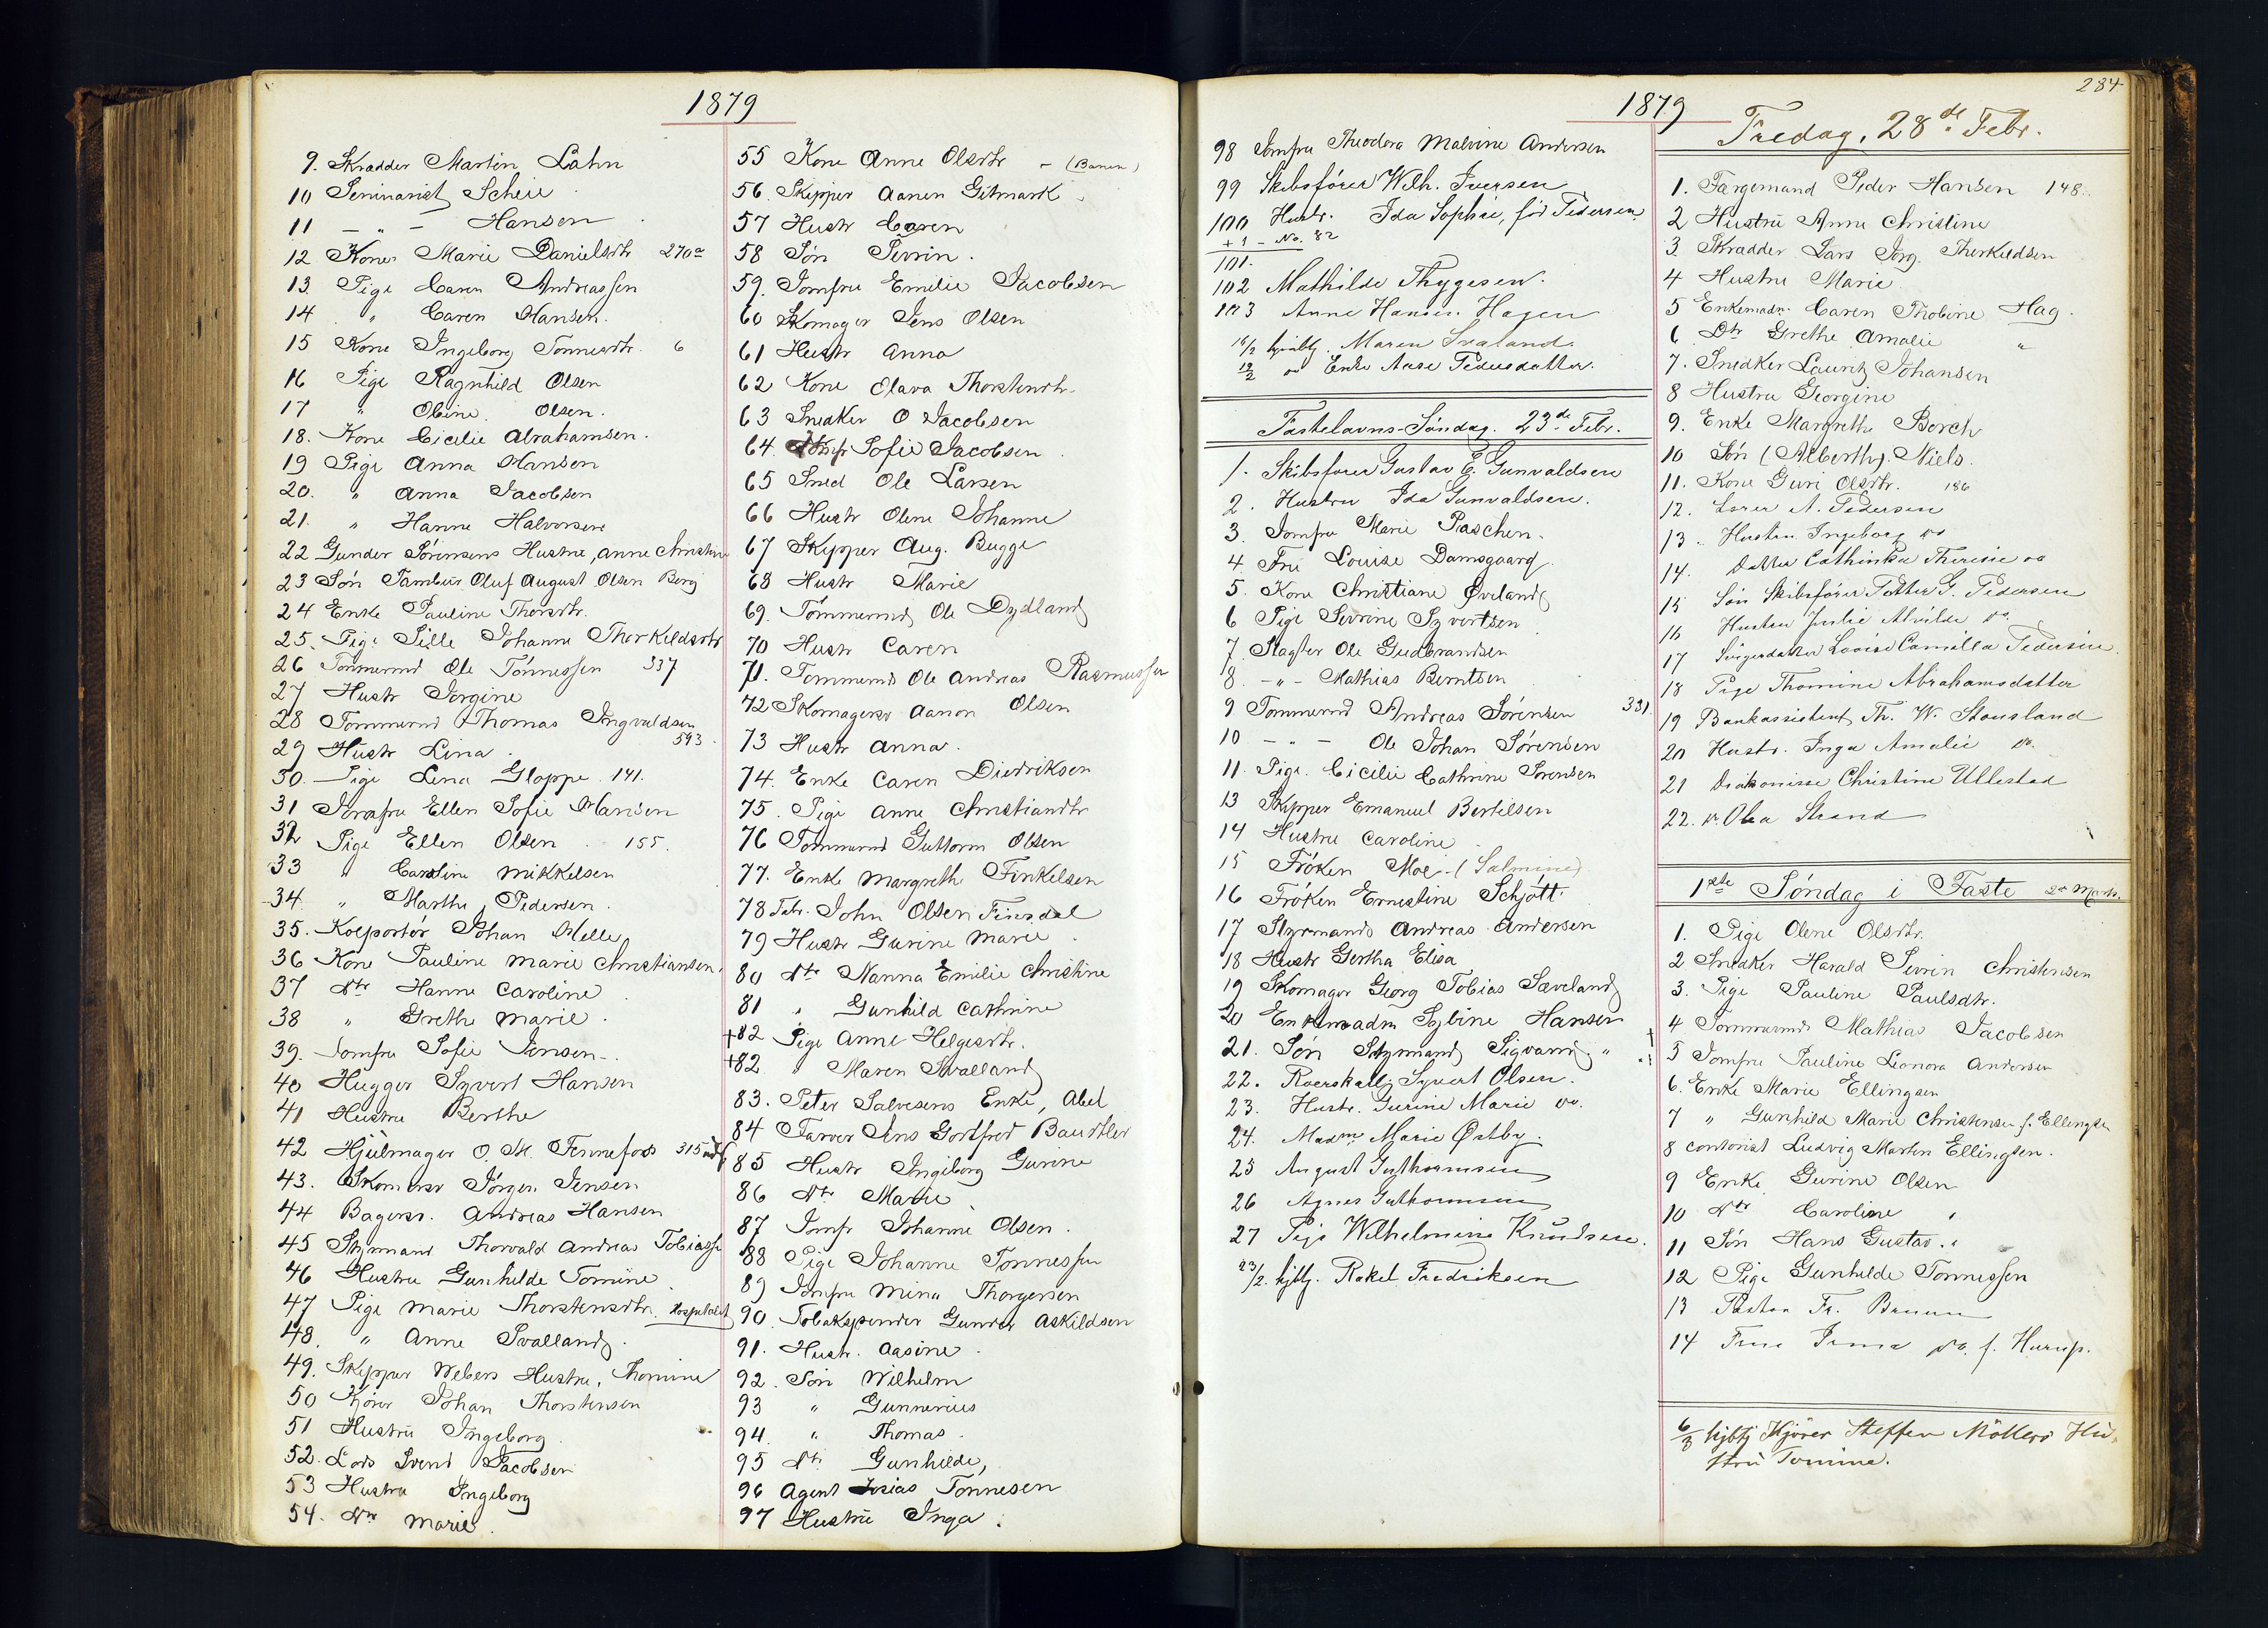 1879
9. Skradder Martin Lahn
10 Seminarist Scheie
11 - " - Hansen
12 Kone Marie Danielsdtr 270a
13 Pige Caren Andreassen
14 " Caren Hansen.
15 Kone Ingeborg Tønnesdtr. 6
16 Pige Ragnhild Olsen
17 " Oline Olsen.
18. Kone Cicilie Abrahamsen.
19 Pige Anna Hansen
20. " Anna Jacobsen
21. " Hanne Halvorsen
22 Gunder Sörensens Hustru, Anne Christine
23 Søn Tambur Oluf August Olsen Berg
24 Enke Pauline Thorsdtr.
25. Pige Sille Johanne Thorkildsdtr
26 Tømmermd Ole Tönnessen 337
27 Hustr Jorgine
28 Tömmermd Thomas Ingvaldsen
593.
29 Hustr Lina.
30. Pige Lina Gloppe 141.
31 Jomfru Ellen Sofie Hansen
32 Pige Ellen Olsen 155.
33 " Caroline Mikkelsen
34. " Marthe Pedersen.
35. Kolportör Johan Helle
36 Kone Pauline Marie Christiansen.
37 Dtr Hanne Caroline
38 " Grethe Marie.
39. Jomfru Sofie Jensen.
40 Hugger Syvert Hansen
41 Hustru Berthe
42 Hjulmager O. M. Fennefoss 315
43. Skomsv Jörgen Jensen
44 Bagersv. Andreas Hansen
45 Styrmand Thorvald Andreas Tobiass
46 Hustru Gunhilde Tomine
47 Pige Marie Thorstensdtr. Hospitalet
48. " Anne Svalland.
49. Skipper Webers Hustru, Thomine
50 Kjører Johan Thorstensen
51 Hustru Ingeborg.
52. Lods Svend Jacobsen
53 Hustru Ingeborg
54. Dtr Marie.
55 Kone Anne Olsdtr - (Banen)
56. Skipper Aanen Gitmark
57 Hustr Caren
58 Søn Sivrin.
59. Jomfru Emilie Jacobsen
60 Skomager Jens Olsen
61 Hustr Anna
62 Kone Olava Thorstensdtr.
63 Snedker O Jacobsen
64. Jomfr Sofie Jacobsen.
65 Smed Ole Larsen
66 Hustr Olene Johanne
67 Skipper Aug. Bugge
68 Hustr Marie
69. Tömmermd Ole Dydland
70 Hustr Caren
71. Tømmermd Ole Andreas Rasmussen
72 Skomagersv Aanon Olsen
73 Hustr Anna.
74. Enke Caren Diedriksen
75. Pige Anne Christiandtr
76 Tommermd Guttorm Olsen
77. Enke Margrethe Finkelsen
78 Fabr. John Olsen Finsdal
79 Hustr Gurine Marie
80 Dtr Nanna Emilie Christine
81 " Gunhild Cathrine
+82 Pige Anne Helgesdtr.
+82 " Maren Svalland
83. Peter Salvesens Enke, Abel
84 Farver Jens Gortfred Baustler
85 Hustr Ingeborg Gurine
86 Dtr Marie
87 Jomfr Johanne Olsen.
88 Pige Johanne Tonnessen
89 Jomfru Mina Thorgersen
90. Tobakspinder Gunder Askildsen
91. Hustr. Aasine.
92. Søn Wilhelm
93 " Gunnerius
94 " Thomas.
95 Dtr Gunhilde,
96 Agent Josias Tonnesen
97 Hustru Inga.
1879
98 Jomfru Theodora Malvine Andersen
99 Skibsförer Wilh. Iversen
100 Hustr. Ida Sophie, fød Pedersen
+ 1 - No. 82
101.
102 Mathilde Thygesen.
103 Anne Hansen Hagen
16/2 hjmbtj. Maren Svaland.
19/2 do Enke Aase Pedersdatter.
Fastelavns-Søndag. 23de Febr.
1. Skibsfører Gustav E. Gunvaldsen
2. Hustru Ida Gunvaldsen.
3. Jomfru Marie Paschen.
4. Fru Louise Damsgaard.
5. Kone Christiane Øveland
6 Pige Sivrine Syvertsen
7. Slagter Ole Gudbrandsen
8. - " - Mathias Berntsen
9 Tommermd Andreas Sörensen 331
10 - " - Ole Johan Sörensen
11. Pige Cicilie Cathrine Sörensen
13 Skipper Emanuel Bertilsen
14 Hustru Caroline
15 Fröken Moe (Salmine)
16 Fröken Ernestine Schjött.
17 Styrmand Andreas Andersen
18 Hustr Gertha Elisa
19 Skomager Georg Tobias Sæveland
20 Enkemadm Sybine Hansen
21. Søn Styrmand Sigvard "
22. Roerskarl Syvert Olsen.
23. Hustr. Gurine Marie do.
24. Madm Marie Østby.
25 August Guthormsen
26 Agnes Guthormsen
27 Pige Wilhelmine Knudsen.
23/2. hjbtj. Rakel Fredriksen
284
Fredag. 28de Febr.
1. Færgemand Peder Hansen 148.
2 Hustru Anne Christine
3. Skradder Lars Jørg. Therkildsen
4 Hustru Marie
5 Enkemadm. Caren Tholine Hag.
6 Dtr Grethe Amalie "
7. Snedker Lauritz Johansen
8 Hustru Georgine
9. Enke Margrethe Borch
10 Søn (Alberth) Niels.
11. Kone Guri Olsdtr. 186
12. Lærer A. Pedersen
13. Hustru Ingeborg do
14. Datter Cathinka Therese do
15 Søn Skibsfører Petter G. Pedersen
16 Hustru Julie Alvilde do.
17 Svigerdatter Lovise Camilla Pedersen.
18 Pige Thomine Abrahamsdatter
19 Bankassistent Th. W. Stousland
20 Hustr. Inga Amalie do.
21 Diakonisse Christine Ullestad
22. do. Olea Strand
1ste Søndag i Faste 2den Marts.
1. Pige Olene Olsdtr.
2 Snedker Harald Sivrin Christensen
3. Pige Pauline Paulsdtr.
4 Tommermd Mathias Jacobsen
5 Jomfru Pauline Leonora Andersen
6. Enke Marie Ellingsen
7 " Gunhild Marie Christensen f. Ellingsen
8 Contorist Ludvig Martin Ellingsen.
9 Enke Gurine Olsen
10 Dtr Caroline "
11 Søn Hans Gustav. "
12 Pige Gunhilde Tonnessen
13 Pastor Fr. Bruun
14 Frue Irma do. f. Hurup.
6/3 hjbtj Kjører Steffen Möllers Hu-
stru Tomine.